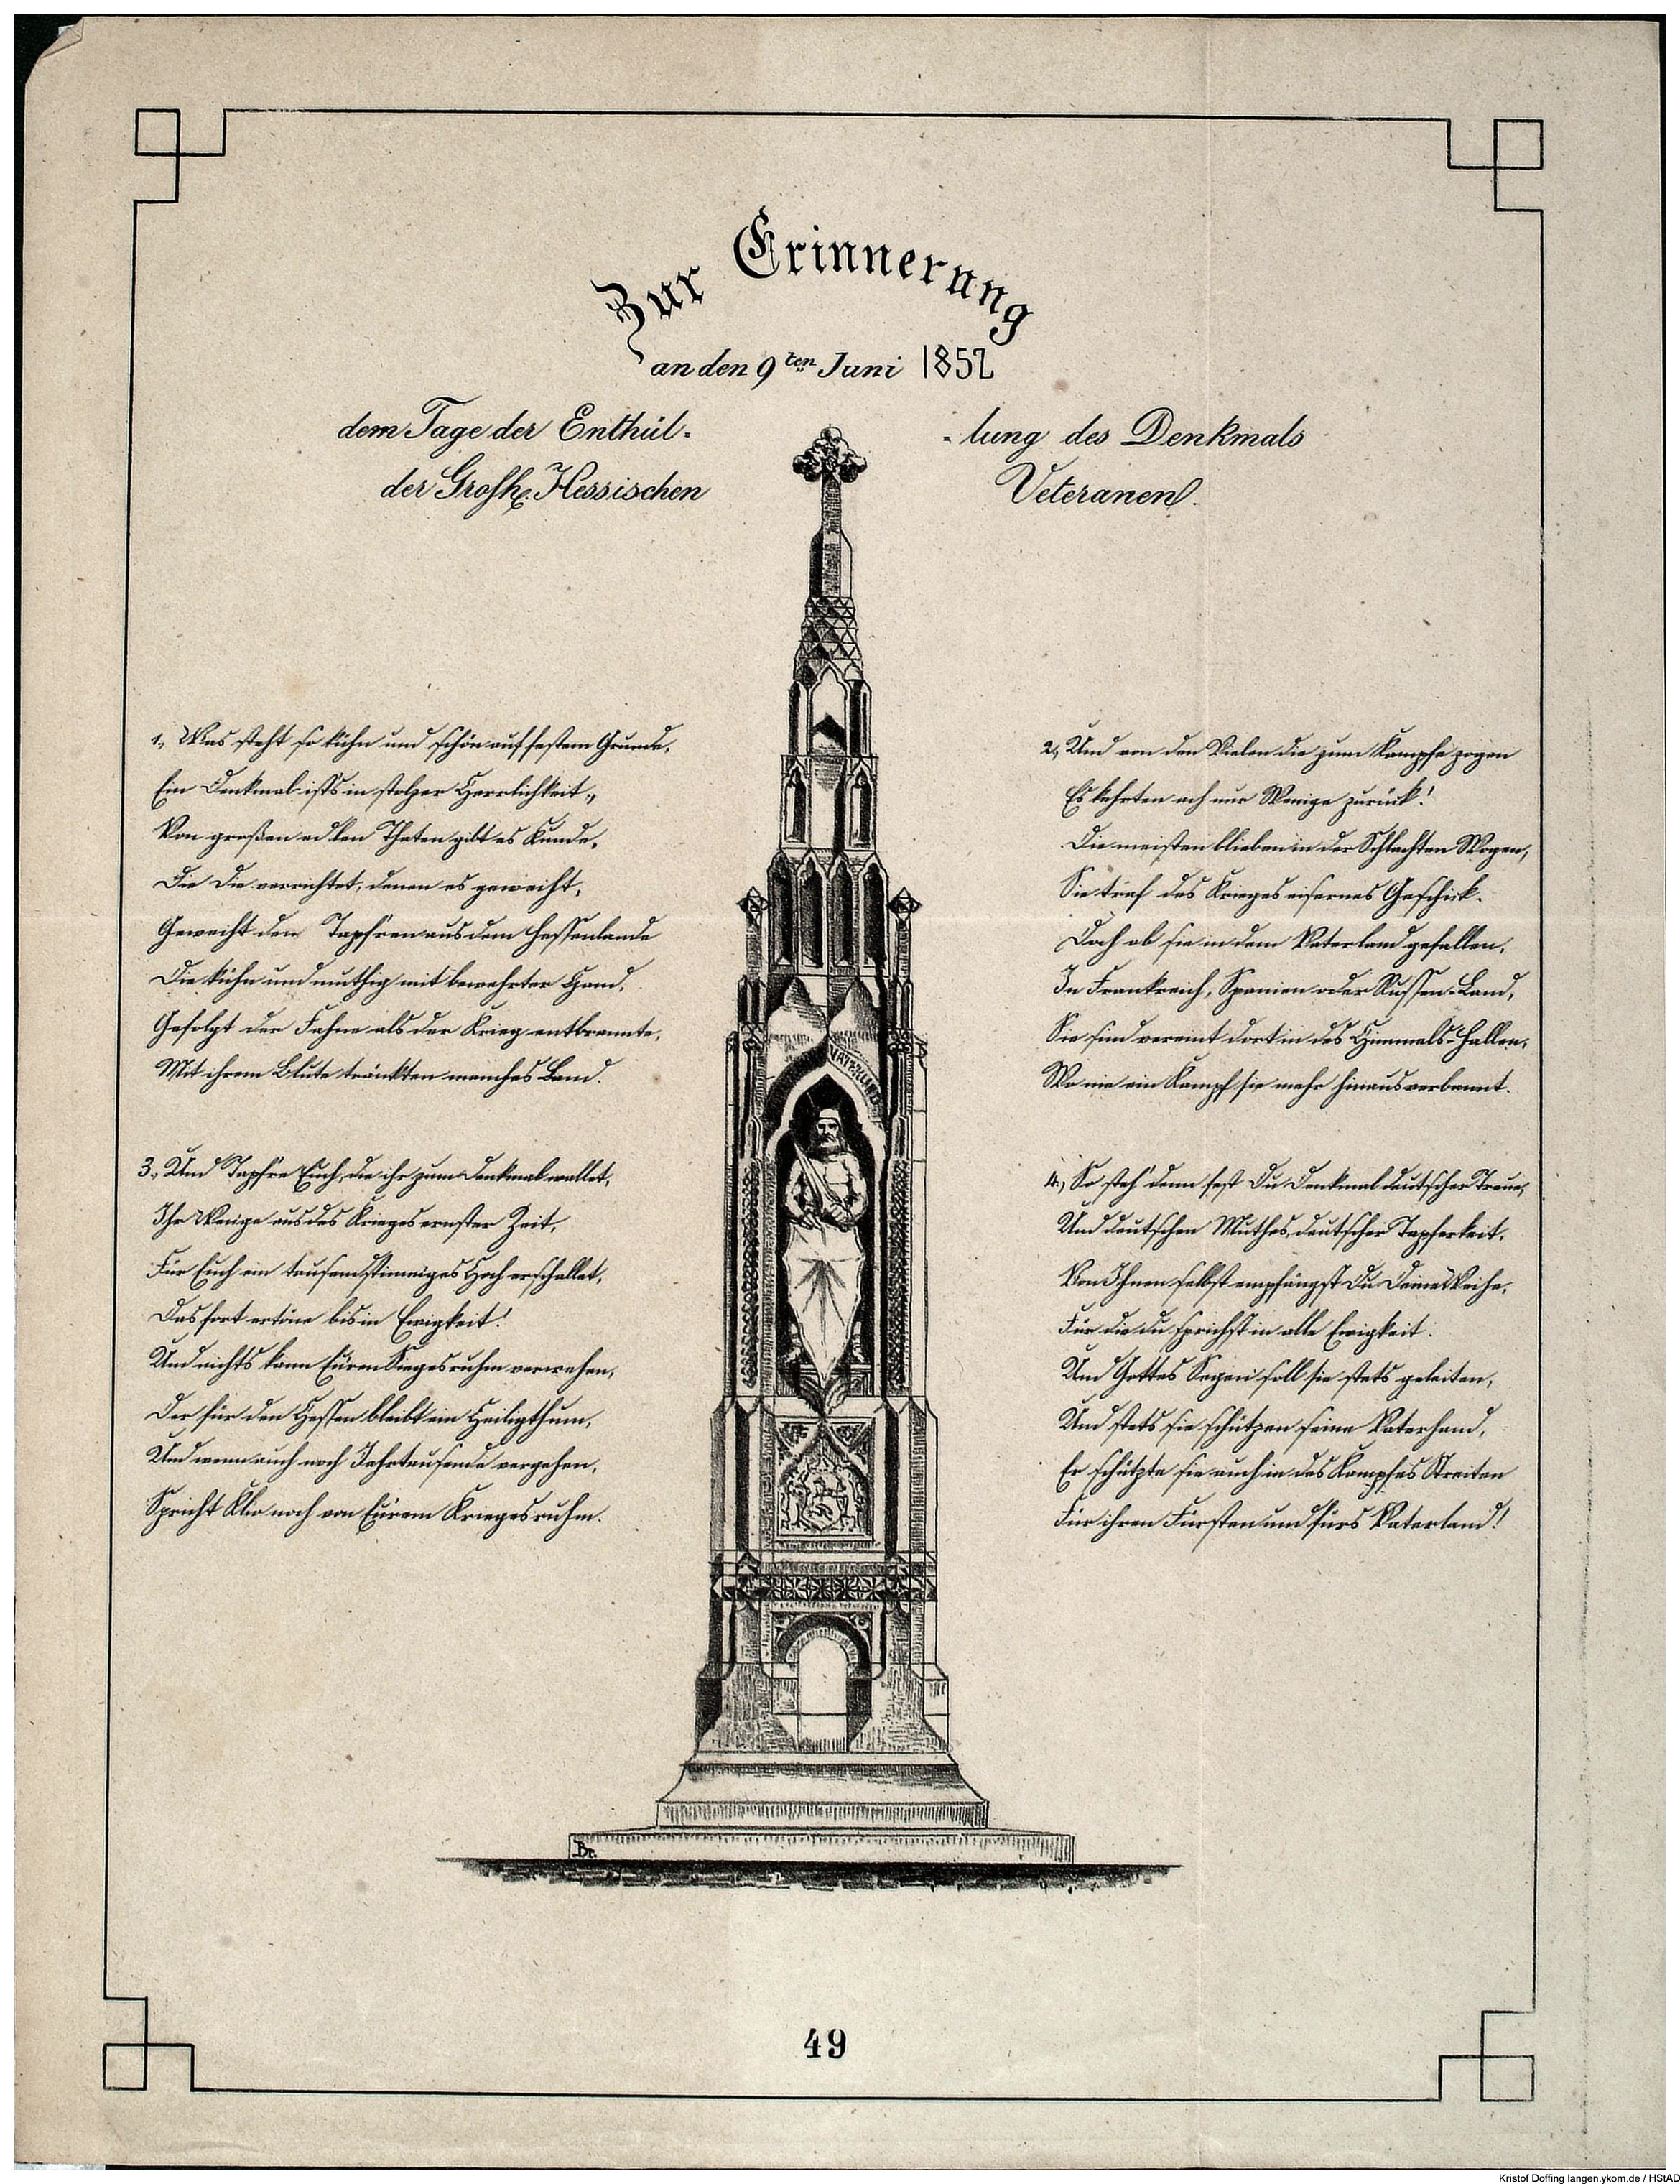 Zur Erinnerung
an den 9ten Juni 1852
dem Tage der Enthül-
-lung des Denkmals
der Grosh. Hessischen
Veteranen.
1., Was steht so kühn und schön auf festem Grunde,
Ein Denkmal ists in stolzer Herrlichkeit,
Von großen edlen Thaten gibt es Kunde,
Die Die verrichtet, denen es geweiht,
Geweiht den Tapfren aus dem Hessenlande
Die kühn und muthig mit bewehrter Hand,
Gefolgt der Fahne als der Krieg entbrannte,
Mit ihrem Blute tränkten manches Land.
2., Und von den Vielen die zum Kampfe zogen
Es kehrten ach nur Wenige zurück!
Die meisten blieben in der Schlachten Wogen,
Sie traf des Krieges eisernes Geschick.
Doch ob sie in dem Vaterland gefallen,
In Frankreich, Spanien oder Russen-Land,
Sie sind vereint dort in des Himmels-Hallen,
Wo nie ein Kampf sie mehr hinaus verbannt.
VATERLAND
3., Und Tapfre Euch, die ihr zum Denkmal wallet,
Ihr Wenige aus des Krieges ernster Zeit,
Für Euch ein tausendstimmiges Hoch erschallet,
Das fort ertöne bis in Ewigkeit!
Und nichts kann Euren Siegesruhm verwehen,
Der für den Hessen bleibt ein Heiligthum,
Und wenn auch noch Jahrtausende vergehen,
Spricht Klio noch von Eurem Kriegesruhm.
4., So steh' denn fest Du Denkmal deutscher Treue,
Und deutschen Muthes, deutscher Tapferkeit,
Von Ihnen selbst empfängst Du Deine Weihe,
Für die du sprichst in alle Ewigkeit.
Und Gottes Segen soll sie stets geleiten,
Und stets sie schützen seine Vaterhand,
Er schützte sie auch in des Kampfes Streiten
Für ihren Fürsten und fürs Vaterland!
Br.
49
Kristof Doffing langen.ykom.de / HStAD